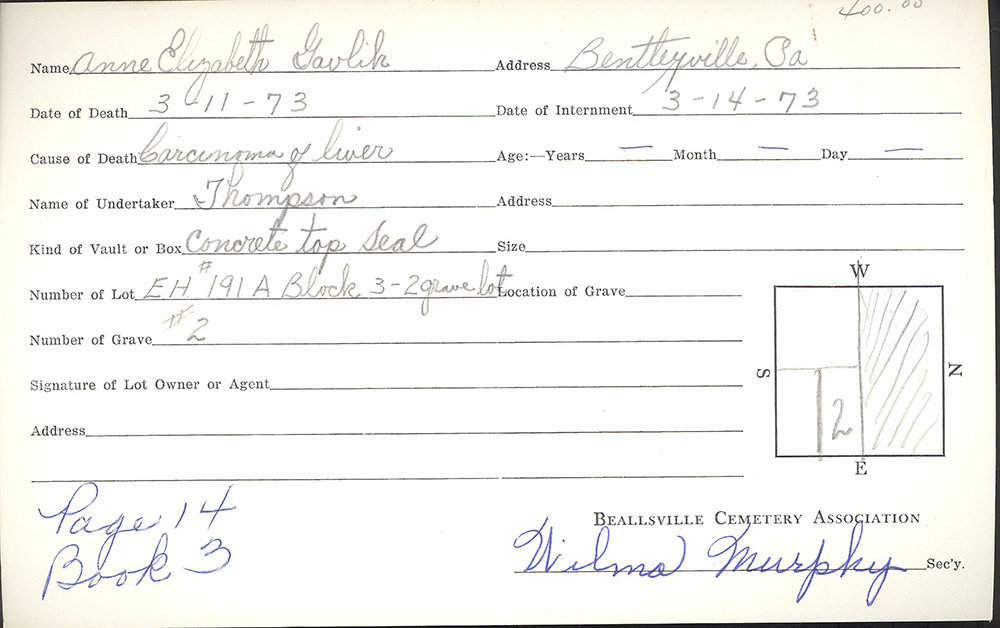 400.00
Name Anne Elizabeth Gavlik Address Bentleyville, Pa
Date of Death 3-11-73 Date of Internment 3-14-73
Cause of Death Carcinoma of liver Age:—Years — Month — Day —
Name of Undertaker Thompson Address
Kind of Vault or Box Concrete top seal Size
Number of Lot EH #191A Block 3-2 grave lot Location of Grave
Number of Grave #2
Signature of Lot Owner or Agent
Address
W
S N
2
E
Page 14
Book 3
Beallsville Cemetery Association
Wilma Murphy Sec'y.